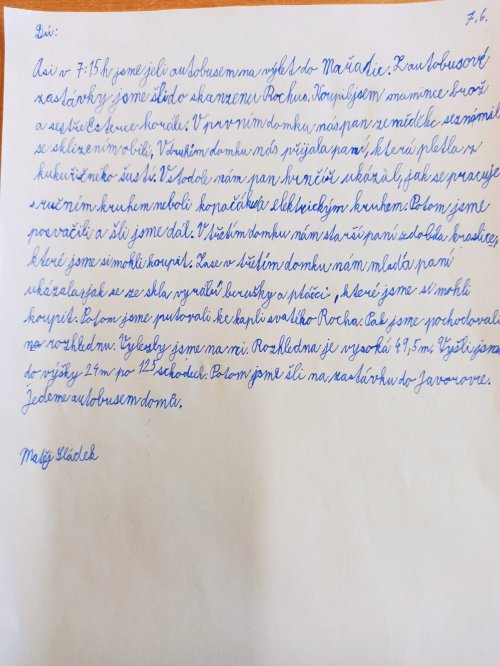 7.6.
Dú:
Asi v 7:15 h jsme jeli autobusem na výlet do Mařatic. Z autobusové
zastávky jsme šli do skanzenu Rochus. Koupil jsem mamince brož
a sestře Esterce korále. V prvním domku nás pan zemědělec seznámil
se sklizením obilí. V druhém domku nás přijala paní, která pletla z
kukuřičného šustí. V stodole nám pan hrnčíř ukázal, jak se pracuje
s ručním kruhem neboli kopačák a elektrickým kruhem. Potom jsme
posvačili a šli jsme dál. V třetím domku nám starší paní zdobila kraslice,
které jsme si mohli koupit. Zase v třetím domku nám mladá paní
ukázala, jak se ze skla vyrábů brušky a ptáčci, které jsme si mohli
koupit. Potom jsme putovali ke kapli svatého Rocha. Pak jsme pochodovali
na rozhlednu. Vylezly jsme na ni. Rozhledna je vysoká 49,5m. Vyšli jsme
do výšky 24m po 123 schodech. Potom jsme šli na zastávku do Javorovce.
Jedeme autobusem domů.
Matěj Sládek